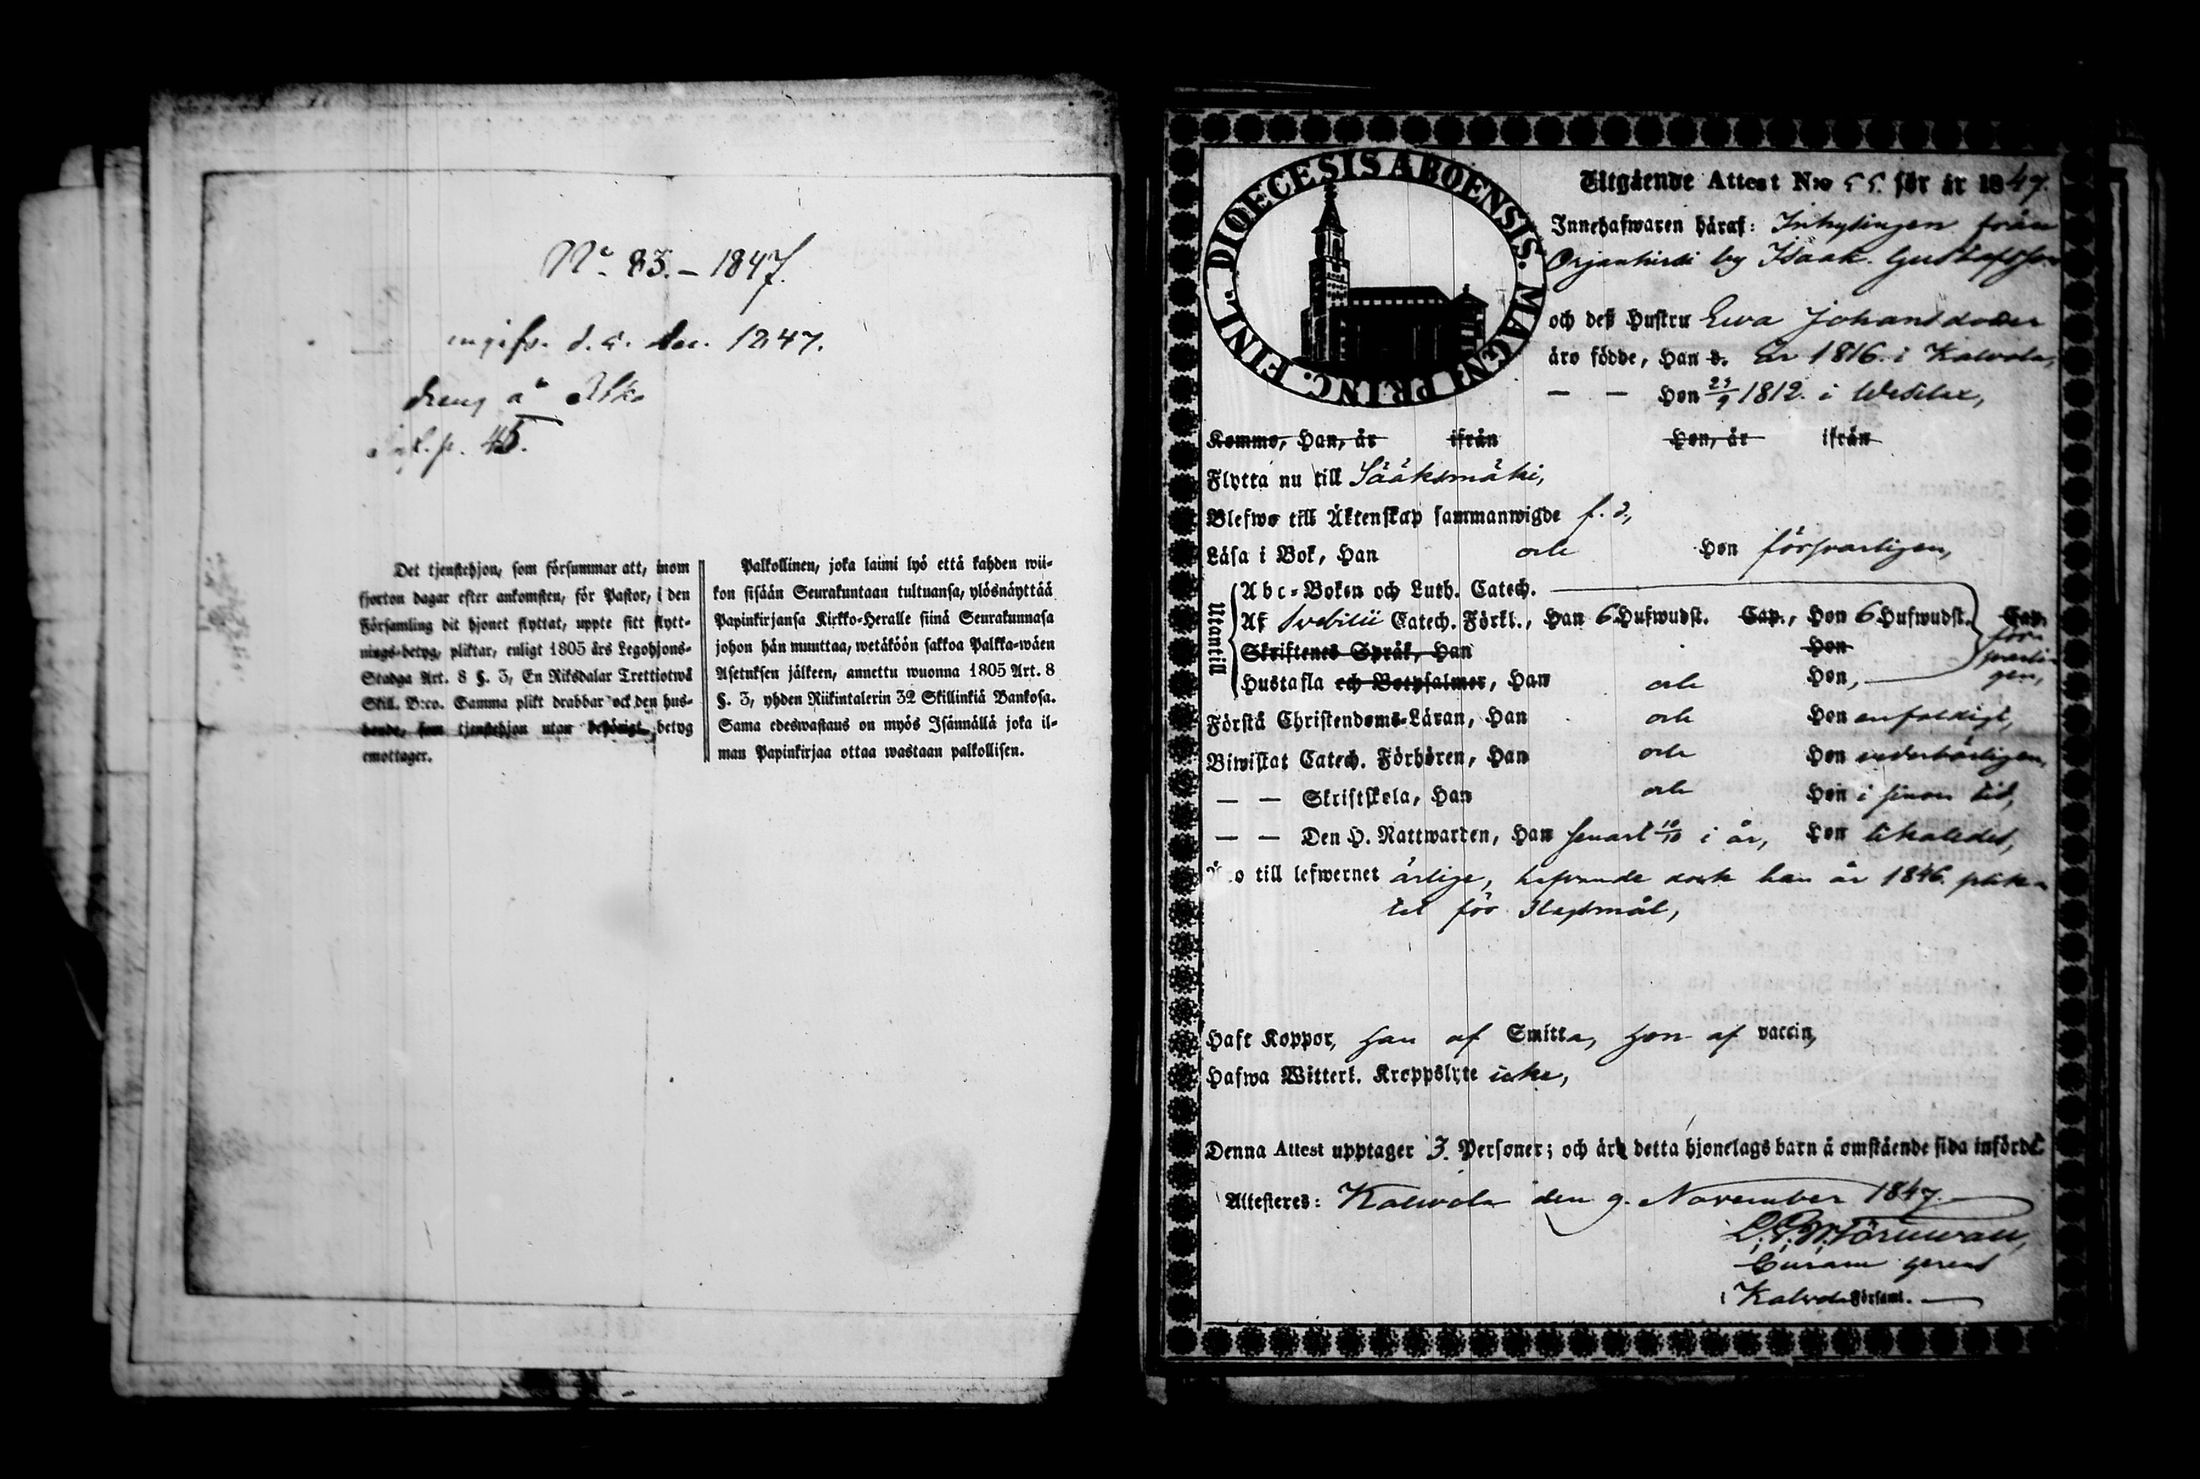 No. 83. – 1847.
d. 5. Dec. 1847.
dreng å
p. 45.
Det tjenstehjon, som försummar att, inom
fjorton dagar efter ankomsten, för Pastor, i den
Församling dit hjonet flyttat, uppte sitt flytt-
nings-betyg, pliktar, enligt 1805 års Legohjons-
Stadga Art. 8 §. 3, En Riksdalar Trettiotwå
Skill. B:co. Samma plikt drabbar ock den hus-
bonde, som tjenstehjon utan behörigt betyg
emottager.
Palkollinen, joka laimi lyö että kahden wii-
kon sisään Seurakuntaan tultuansa, ylösnäyttää
Papinkirjansa Kirkko-Heralle siinä Seurakunnasa
johon hän muuttaa, wetäköön sakkoa Palkka-wäen
Asetuksen jälkeen, annettu wuonna 1805 Art. 8
§. 3, yhden Riikintalerin 32 Skillinkiä Bankosa.
Sama edeswastaus on myös Isännällä joka il-
man Papinkirjaa ottaa wastaan palkollisen.
DIOECESIS ABOENSIS. MAGNI PRINC. FINL.
Utgående Attest N:o 55. för år 1847.
Innehafwaren häraf: Inhysingen från
Orjanhirsi by Isaak Gustafsson
och deß Hustru Ewa Johansdotter
äro födde, Han d. År 1816. i Kalvola,
— — Hon 23/9 1812. i
Komme, Han, år ifrån Hon, år ifrån
Flytta nu till Sääksmäki,
Blefwo till Äktenskap sammanwigde f. d.,
Läsa i Bok, Han och Hon försvarligen,
Utantill
Abc-Boken och Luth. Catech.
Af Svebilii Catech. Förkl., Han 6 Hufwudst. Cap., Hon 6 Hufwudst. Cap.
Skriftenes Språk, Han Hon
försvarligen,
Hustafla och Botpsalmer, Han och Hon,
Förstå Christendoms-Läran, Han och Hon enfaldigt,
Biwistat Catech. Förhören, Han och Hon vederbörligen,
— — Skriftskola, Han och Hon i sinom tid,
— — Den H. Nattwarden, Han senast 10/10 i år, Hon likaledes,
Äro till lefwernet ärlige, hafvande dock han år 1846. plik-
tat för Slagsmål,
Haft Koppor, Han af Smitta, Hon af vaccin,
Hafwa Witterl. Kroppslyte icke,
Denna Attest upptager 3. Personer; och äro detta hjonelags barn å omstående sida införde
Attesteres: Kalvola den 9. November 1847.
Törnwall,
Curam gerens
i Kalvola Församl.